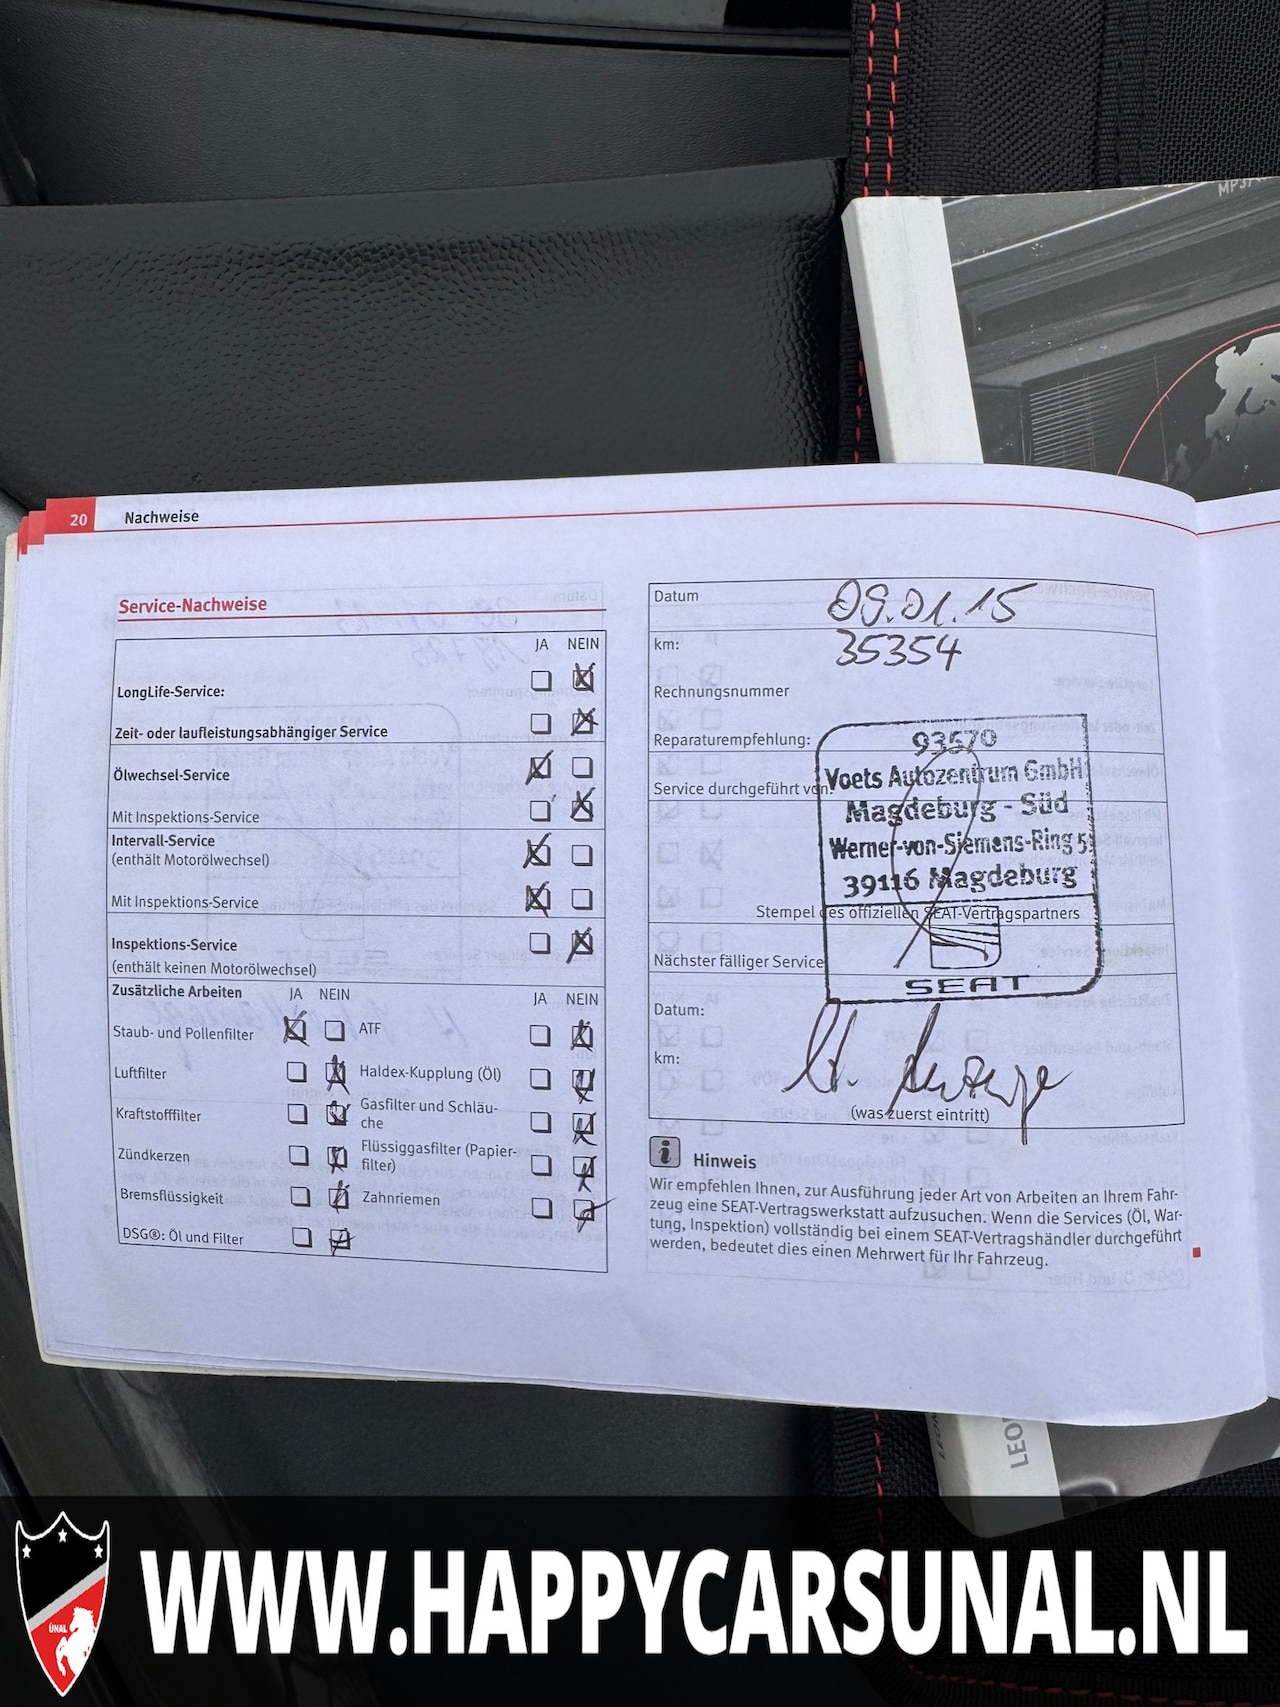 MP3
20 Nachweise
Service-Nachweise
JA NEIN
LongLife-Service:
Zeit- oder laufleistungsabhängiger Service
Ölwechsel-Service
Mit Inspektions-Service
Intervall-Service
(enthält Motorölwechsel)
Mit Inspektions-Service
Inspektions-Service
(enthält keinen Motorölwechsel)
Zusätzliche Arbeiten JA NEIN JA NEIN
Staub- und Pollenfilter ATF
Luftfilter Haldex-Kupplung (Öl)
Kraftstofffilter Gasfilter und Schläu-
che
Zündkerzen Flüssiggasfilter (Papier-
filter)
Bremsflüssigkeit Zahnriemen
DSG®: Öl und Filter
Datum 09.01.15
km: 35354
Rechnungsnummer
Reparaturempfehlung:
93570
Service durchgeführt von:
Voets Autozentrum GmbH
Magdeburg - Süd
Werner-von-Siemens-Ring 5
39116 Magdeburg
Stempel des offiziellen SEAT-Vertragspartners
Nächster fälliger Service
SEAT
Datum:
km:
lt. Anzeige
(was zuerst eintritt)
i Hinweis
Wir empfehlen Ihnen, zur Ausführung jeder Art von Arbeiten an Ihrem Fahr-
zeug eine SEAT-Vertragswerkstatt aufzusuchen. Wenn die Services (Öl, War-
tung, Inspektion) vollständig bei einem SEAT-Vertragshändler durchgeführt
werden, bedeutet dies einen Mehrwert für Ihr Fahrzeug.
LEON
ÜNAL
WWW.HAPPYCARSUNAL.NL